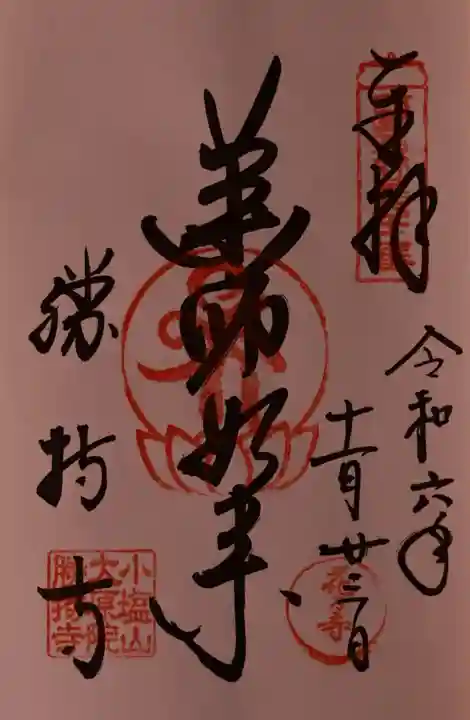 奉拝
令和六年
十一月廿三日
薬師如来
勝持寺
小塩山
大原院
勝持寺
花寺